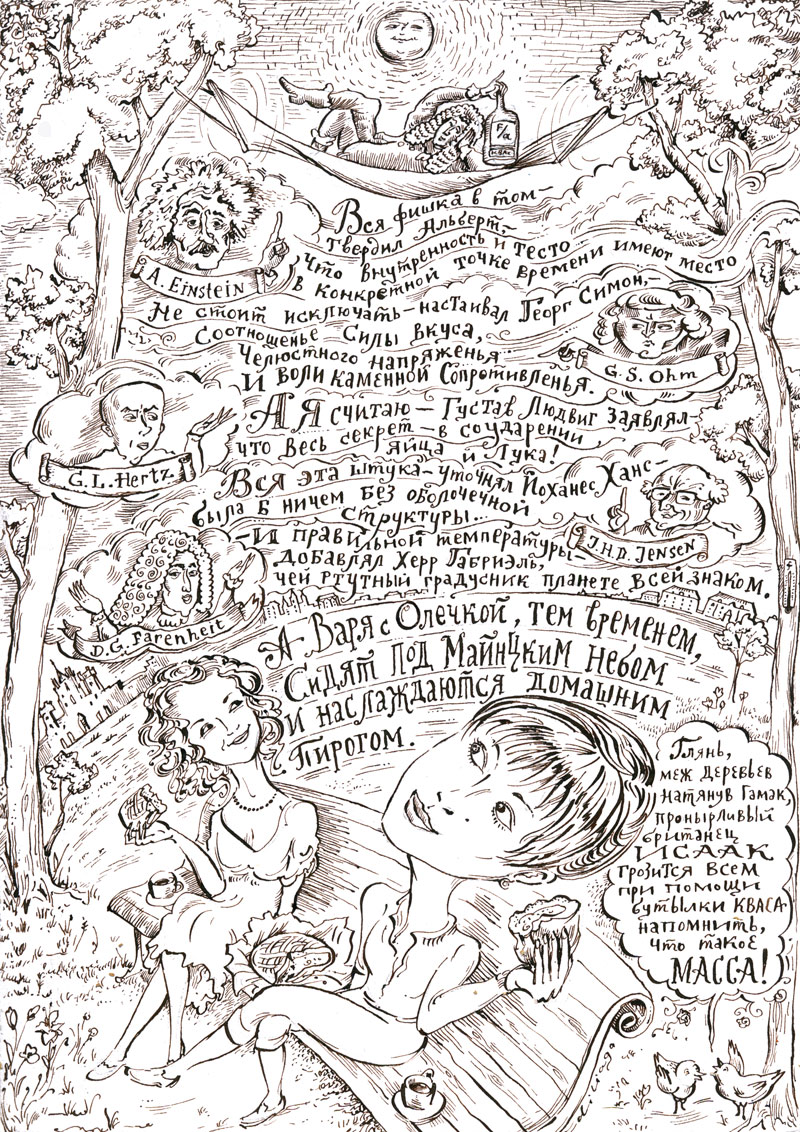 F/a
КВАС
Вся фишка в том—
Твердил Альберт,—
Что внутренность и тесто
в конкретной точке времени имеют место
A. Einstein
Не стоит исключать—настаивал Георг Симон,—
Соотношенье Силы вкуса,
Челюстного напряженья
И воли каменной Сопротивленья.
G. S. Ohm
А Я считаю— Густав Людвиг заявлял—
что весь секрет—в соударении
яйца и Лука!
G. L. Hertz
Вся эта штука—уточнял Йоханес Ханс—
была б ничем без оболочечной
структуры...
J.H.D. JENSEN
—И правильной температуры—
добавлял Херр Габриэль,
чей ртутный градусник планете всей знаком.
D. G. Farenheit
А Варя с Олечкой, тем временем,
Сидят под Майнцким небом
и наслаждаются домашним
Пирогом.
Глянь,
меж деревьев
натянув гамак,
пронырливый
британец
ИСААК
грозится всем
при помощи
бутылки КВАСА
напомнить,
что такое
МАССА!